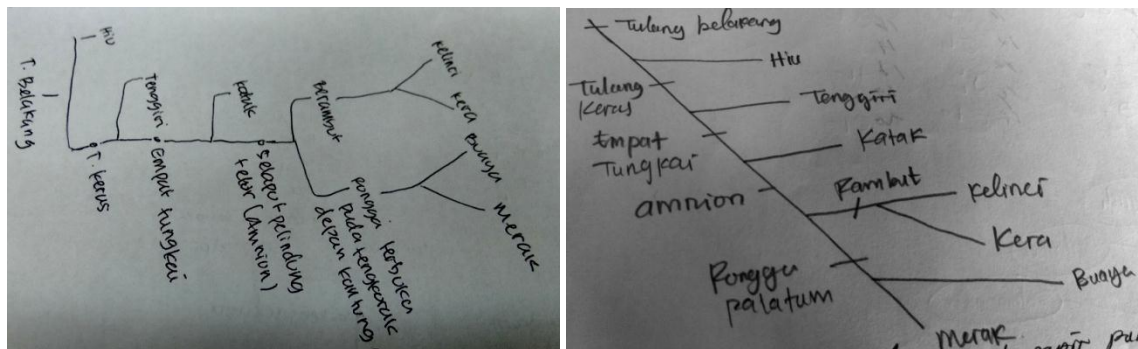 T. Belakang
Hiu
T. Keras
Tenggiri
Empat tungkai
Katak
Selaput pelindung
telor (amnion)
Berambut
Kelinci
Kera
rongga terbuka
pada tengkorak
depan kantung
Buaya
Merak
Tulang belakang
Hiu
Tulang
Keras
Tenggiri
Empat
Tungkai
Katak
amnion
Rambut
Kelinci
Kera
Rongga
palatum
Buaya
Merak